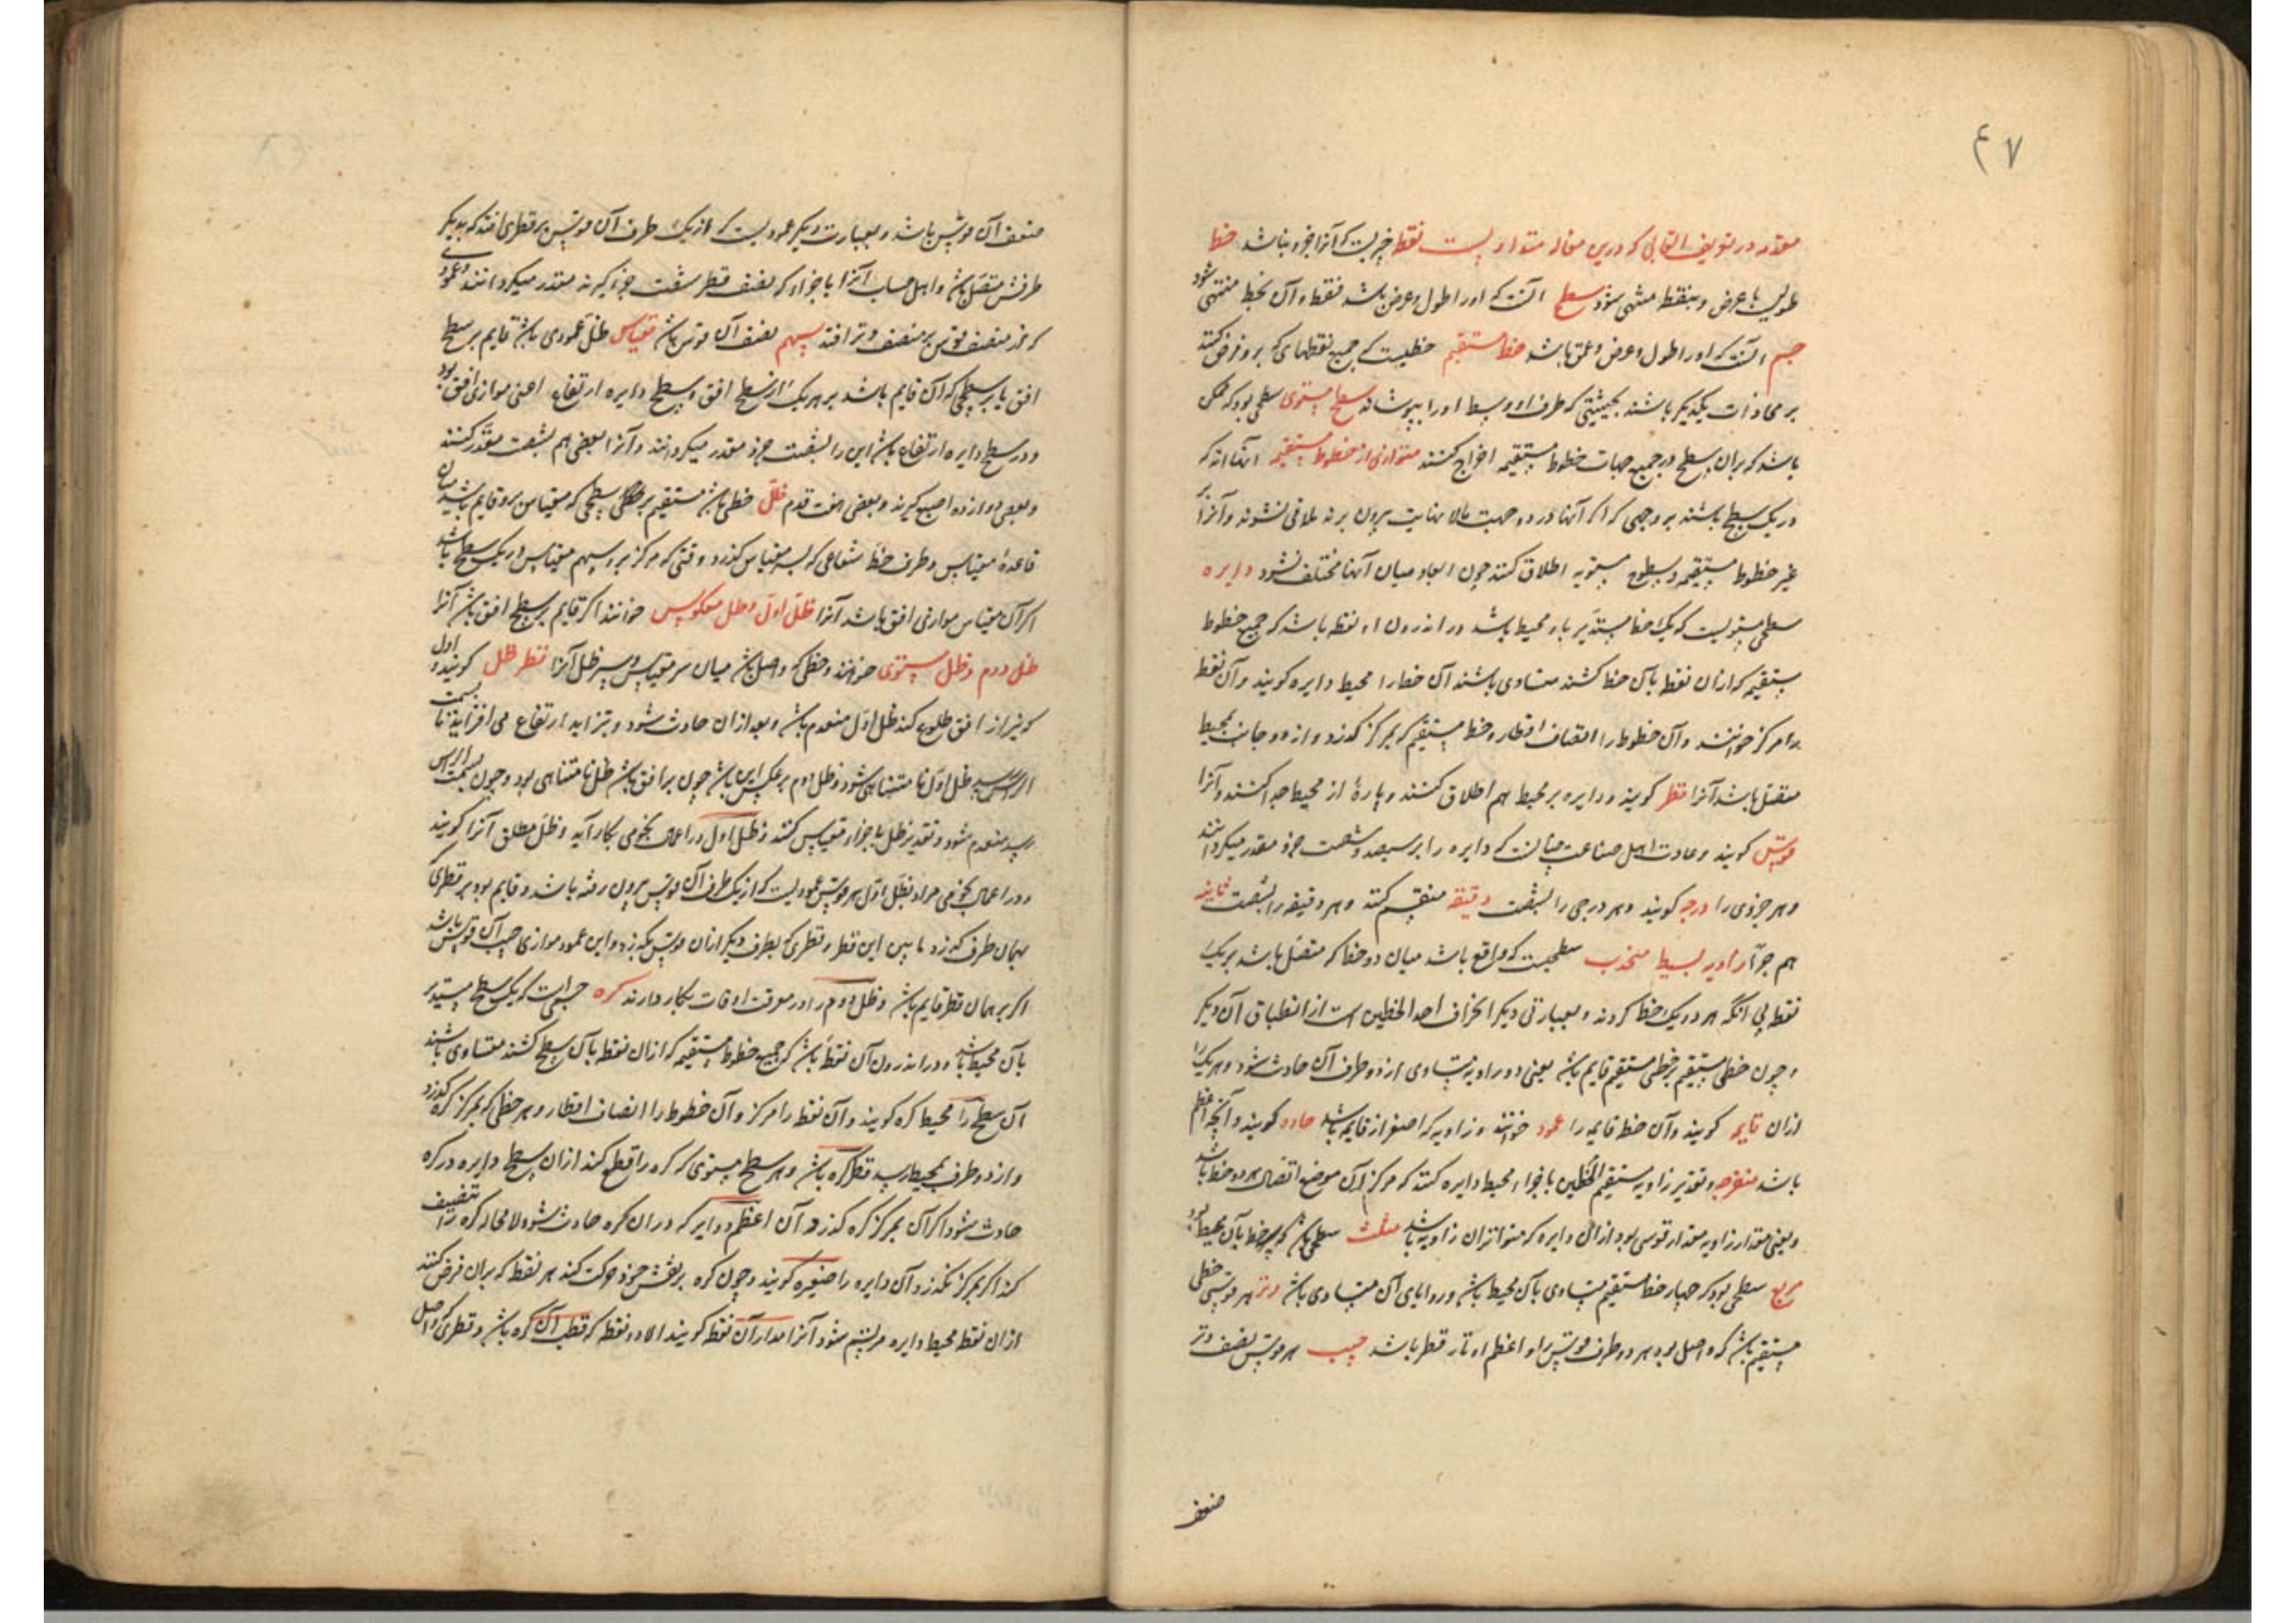 ۴۷
مقدمه در تعریف القابی که درین مقاله متداولست نقطه چیزیست که آنرا جزو نباشد خط
طولیست بی عرض و بنقطه منتهی شود سطح آنست که او را طول و عرض باشد فقط و آن بخط منتهی شود
جسم آنست که او را طول و عرض و عمق باشد خط مستقیم خطیست که جمیع نقطهای که برو فرض کنند
بر محاذات یکدیگر باشند بحیثیتی که طرف او وسط او را بپوشاند سطح مستوی سطحی بود که ممکن
باشد که بران سطح در جمیع جهات خطوط مستقیمه اخراج کنند متوازی از خطوط مستقیمه آنها اند که
در یک سطح باشند بر وجهی که اگر آنها در دو جهت بلا نهایت بیرون برند ملاقی نشوند و آنرا بر
غیر خطوط مستقیمه و سطوح مستویه اطلاق کنند چون ابعاد میان آنها مختلف نشود دایره
سطحی مستویست که یک خط مستدیر باو محیط باشد و در اندرون او نقطه باشد که جمیع خطوط
مستقیمه که از ان نقطه بآن خط کشند متساوی باشند آن خط را محیط دایره گویند و آن نقطه
را مرکز خوانند و آن خطوط را انصاف اقطار و خط مستقیم که بمرکز گذرد و از دو جانب بمحیط
متصل باشد آنرا قطر گویند و دایره بر محیط هم اطلاق کنند و پارهٔ از محیط جدا کنند و آنرا
قوس گویند و عادت اهل صناعت چنانست که دایره را بر سیصد و شصت جزو مقدر میگردانند
و هر جزوی را درجه گویند و هر درجی را بشصت دقیقه منقسم کنند و هر دقیقه را بشصت ثانیه
هم جرّا زاویه بسیط منحدب سطحیست که واقع باشد میان دو خط که متصل باشد بر یک
نقطه بی آنکه هر دو یک خط گردند و بعبارتی دیگر انحراف احد الخطین است از انطباق آن دیگر
و چون خطی مستقیم بر خطی مستقیم قایم باشد یعنی دو زاویه متساوی از دو طرف آن حادث شود و هر یک را
ازان قایمه گویند و آن خط قایم را عمود خوانند و زاویه که اصغر از قایمه باشد حاده گویند و آنچه اعظم
باشد منفرجه و تقدیر زاویه مستقیم الخطین باجزاء محیط دایره کنند که مرکز آن موضع اتصال هر دو خط باشد
و یعنی مقدار زاویه مقدار قوسی بود ازان دایره که موتر ان زاویه باشد مثلث سطحی باشد که سه خط بآن محیط بود
مربع سطحی بود که چهار خط مستقیم متساوی بآن محیط باشد و زوایای آن متساوی باشد وتر هر قوسی خطی
مستقیم باشد که واصل بود بهر دو طرف قوس و اعظم اوتار قطر باشد جیب هر قوس نصف وتر
ضعف
ضعف آن قوس باشد و بعبارت دیگر عمودیست که از یک طرف آن قوس بر قطری افتد که بدیگر
طرفش متصل باشد و اهل حساب آنرا باجزاء که نصف قطر شصت جزو گیرند مقدر میگردانند و عمودی
که از منصف قوس بر منصف وتر افتد سهم نصف آن قوس باشد مقیاس ظل عمودی باشد قایم بر سطح
افق یا بر سطحی که آن قایم باشد بر هر یک از سطح افق و سطح دایره ارتفاع اعنی موازی افق بود
و در سطح دایره ارتفاع باشد این را بشصت جزو مقدر میگردانند و آنرا بعضی هم بشصت مقدر کنند
و بعضی دوازده اصبع گیرند و بعضی هفت قدم ظل خطی باشد مستقیم بر سطحی که مقیاس برو قایم باشد میان
قاعدهٔ مقیاس و طرف خط شعاعی که بسر مقیاس گذرد وقتی که مرکز نیر و سهم مقیاس در یک سطح باشد
اگر آن مقیاس موازی افق باشد آنرا ظل اول و ظل معکوس خوانند اگر قایم بر سطح افق باشد آنرا
ظل دوم و ظل مستوی خوانند و خطی که واصل باشد میان سر مقیاس و سر ظل آنرا قطر ظل گویند و اول
که نیر از افق طلوع کند ظل اول منعدم باشد و بعد ازان حادث شود و بتزاید ارتفاع می افزاید تا بسمت
الراس رسد ظل اول نا متناهی شود و ظل دوم بر عکس این باشد چون بر افق باشد ظل نا متناهی بود و چون بسمت الراس
رسد منعدم شود و تقدیر ظل باجزاء مقیاس کنند و ظل اول در اعمال نجومی بکار آید و ظل مطلق آنرا گویند
و در اعمال نجومی مراد بظل اول هر قوس عمودیست که از یک طرف آن قوس بیرون رفته باشد و قایم بود بر قطری که
بهمان طرف گذرد ما بین این قطر و قطری که بطرف دیگر ازان قوس بگذرد و این عمود موازی جیب آن قوس باشد
اگر بر همان قطر قایم باشد و ظل دوم را در معرفت اوقات بکار دارند کره جسمی است که یک سطح مستدیر
بآن محیط باشد و در اندرون آن نقطه باشد که جمیع خطوط مستقیمه که ازان نقطه بآن سطح کشند متساوی باشند
آن سطح را محیط کره گویند و آن نقطه را مرکز و آن خطوط را انصاف اقطار و هر خطی که بمرکز کره گذرد
و از دو طرف بمحیط رسد قطر کره باشد و هر سطح مستوی که کره را قطع کند ازان سطح دایره در کره
حادث شود اگر آن بمرکز کره گذرد آن اعظم دوایر که دران کره حادث شود و لا محاله کره را تنصیف
کند اگر بمرکز نگذرد آن دایره را صغیره گویند و چون کره بر نفس خود حرکت کند هر نقطه که بران فرض کنند
ازان نقطه محیط دایره مرتسم شود آنرا مدار آن نقطه گویند الا دو نقطه که قطب آن کره باشد و قطری که واصل